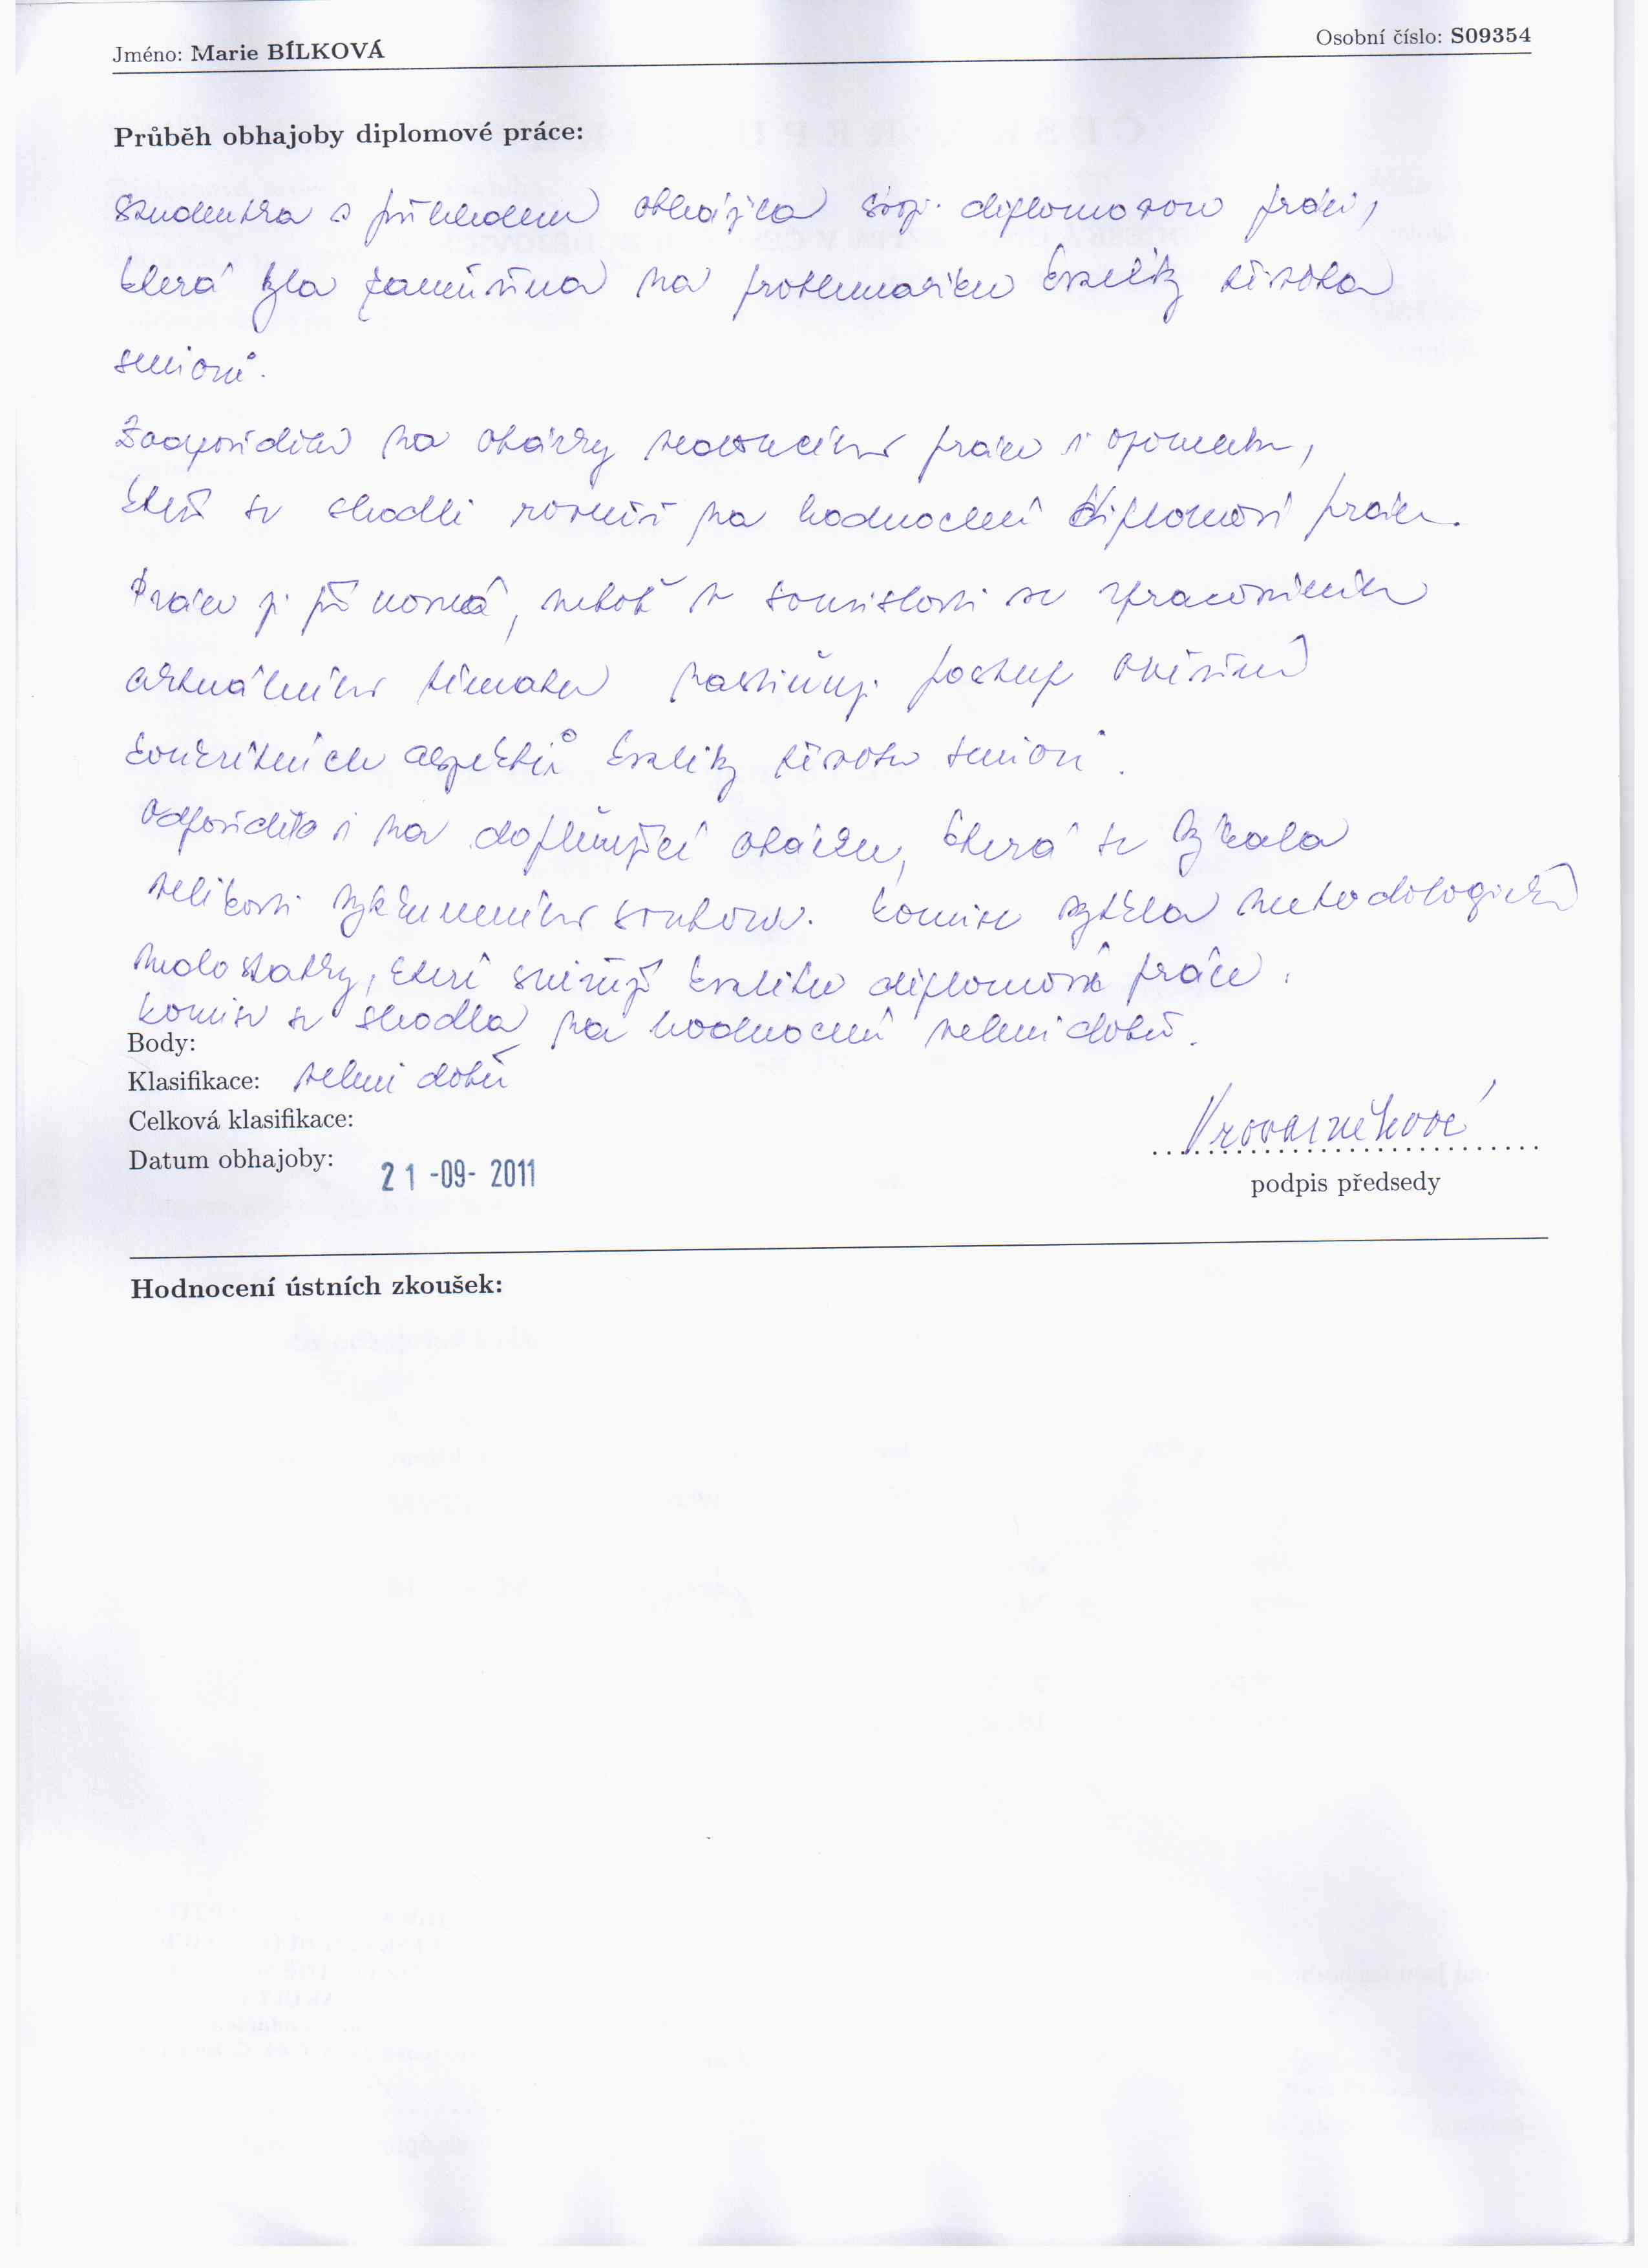 Jméno: Marie BÍLKOVÁ
Osobní číslo: S09354
Průběh obhajoby diplomové práce:
Studentka s přehledem obhájila svoji diplomovou práci,
která byla zaměřena na problematiku kvality života
seniorů.
Zodpověděla na otázky vedoucího práce i oponenta,
kteří se shodli rovněž na hodnocení diplomové práce.
Práce je přínosná, neboť v souvislosti se zpracováním
aktuálního tématu nastiňuje postup ověření
konkrétních aspektů kvality života seniorů.
Odpověděla i na doplňující otázku, která se týkala
velikosti výzkumného souboru. Komise vytkla metodologické
nedostatky, které snižují kvalitu diplomové práce.
Komise se shodla na hodnocení velmi dobře.
Body:
Klasifikace: velmi dobře
Celková klasifikace:
Datum obhajoby: 21 -09- 2011
podpis předsedy
Hodnocení ústních zkoušek: